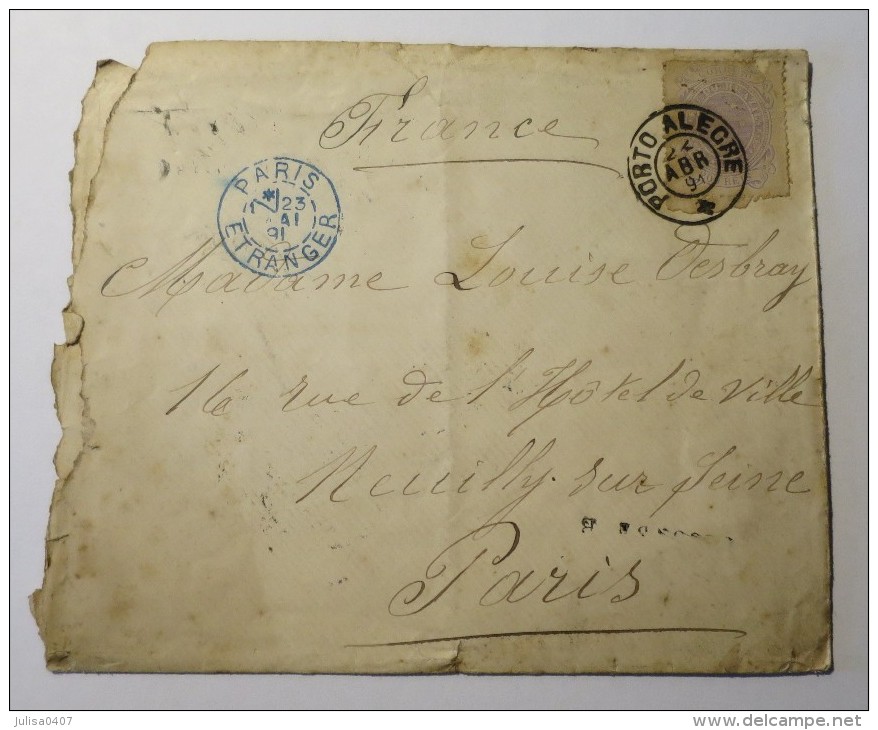 France
PORTO ALEGRE
24
ABR
91
PARIS
23
MAI
91
ETRANGER
Madame Louise Desbray
16 rue de l'Hôtel de Ville
Neuilly sur Seine
Paris
Julisa0407
www.delcampe.net